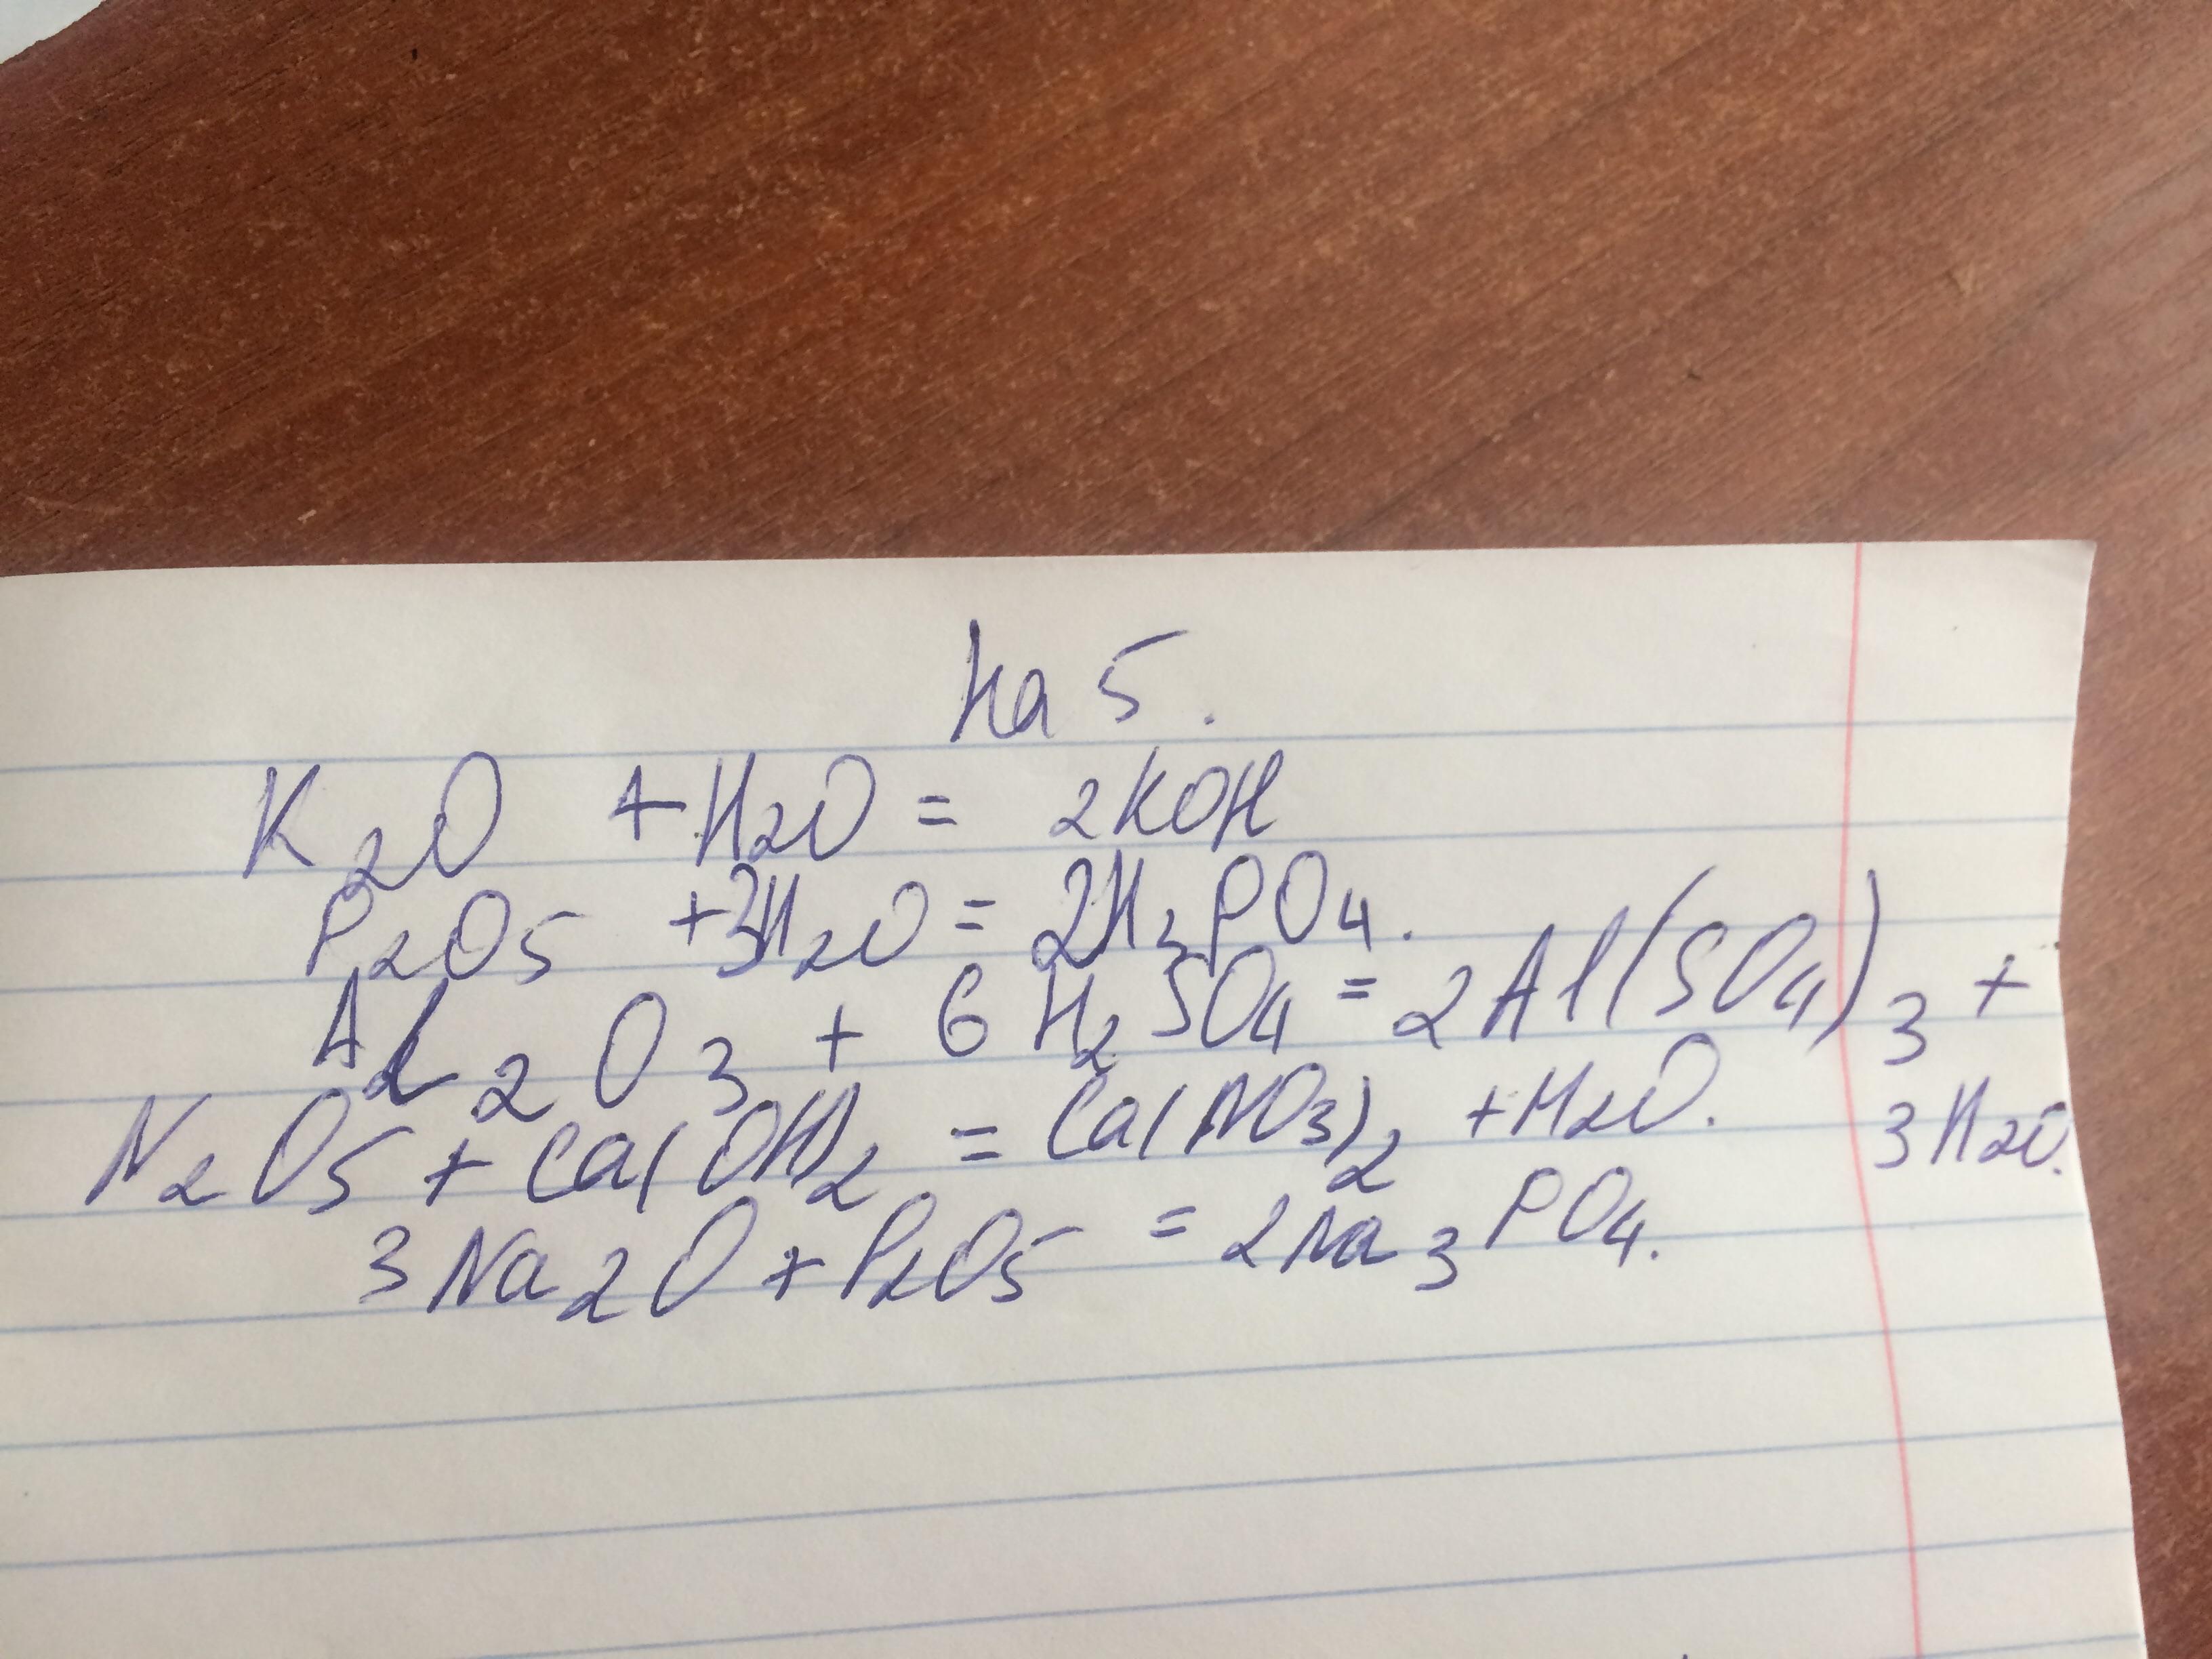 на 5.
K2O + H2O = 2KOH
P2O5 + 3H2O = 2H3PO4.
Al2O3 + 6H2SO4 = 2Al(SO4)3 +
3H2O.
N2O5 + Ca(OH)2 = Ca(NO3)2 + H2O.
3Na2O + P2O5 = 2Na3PO4.